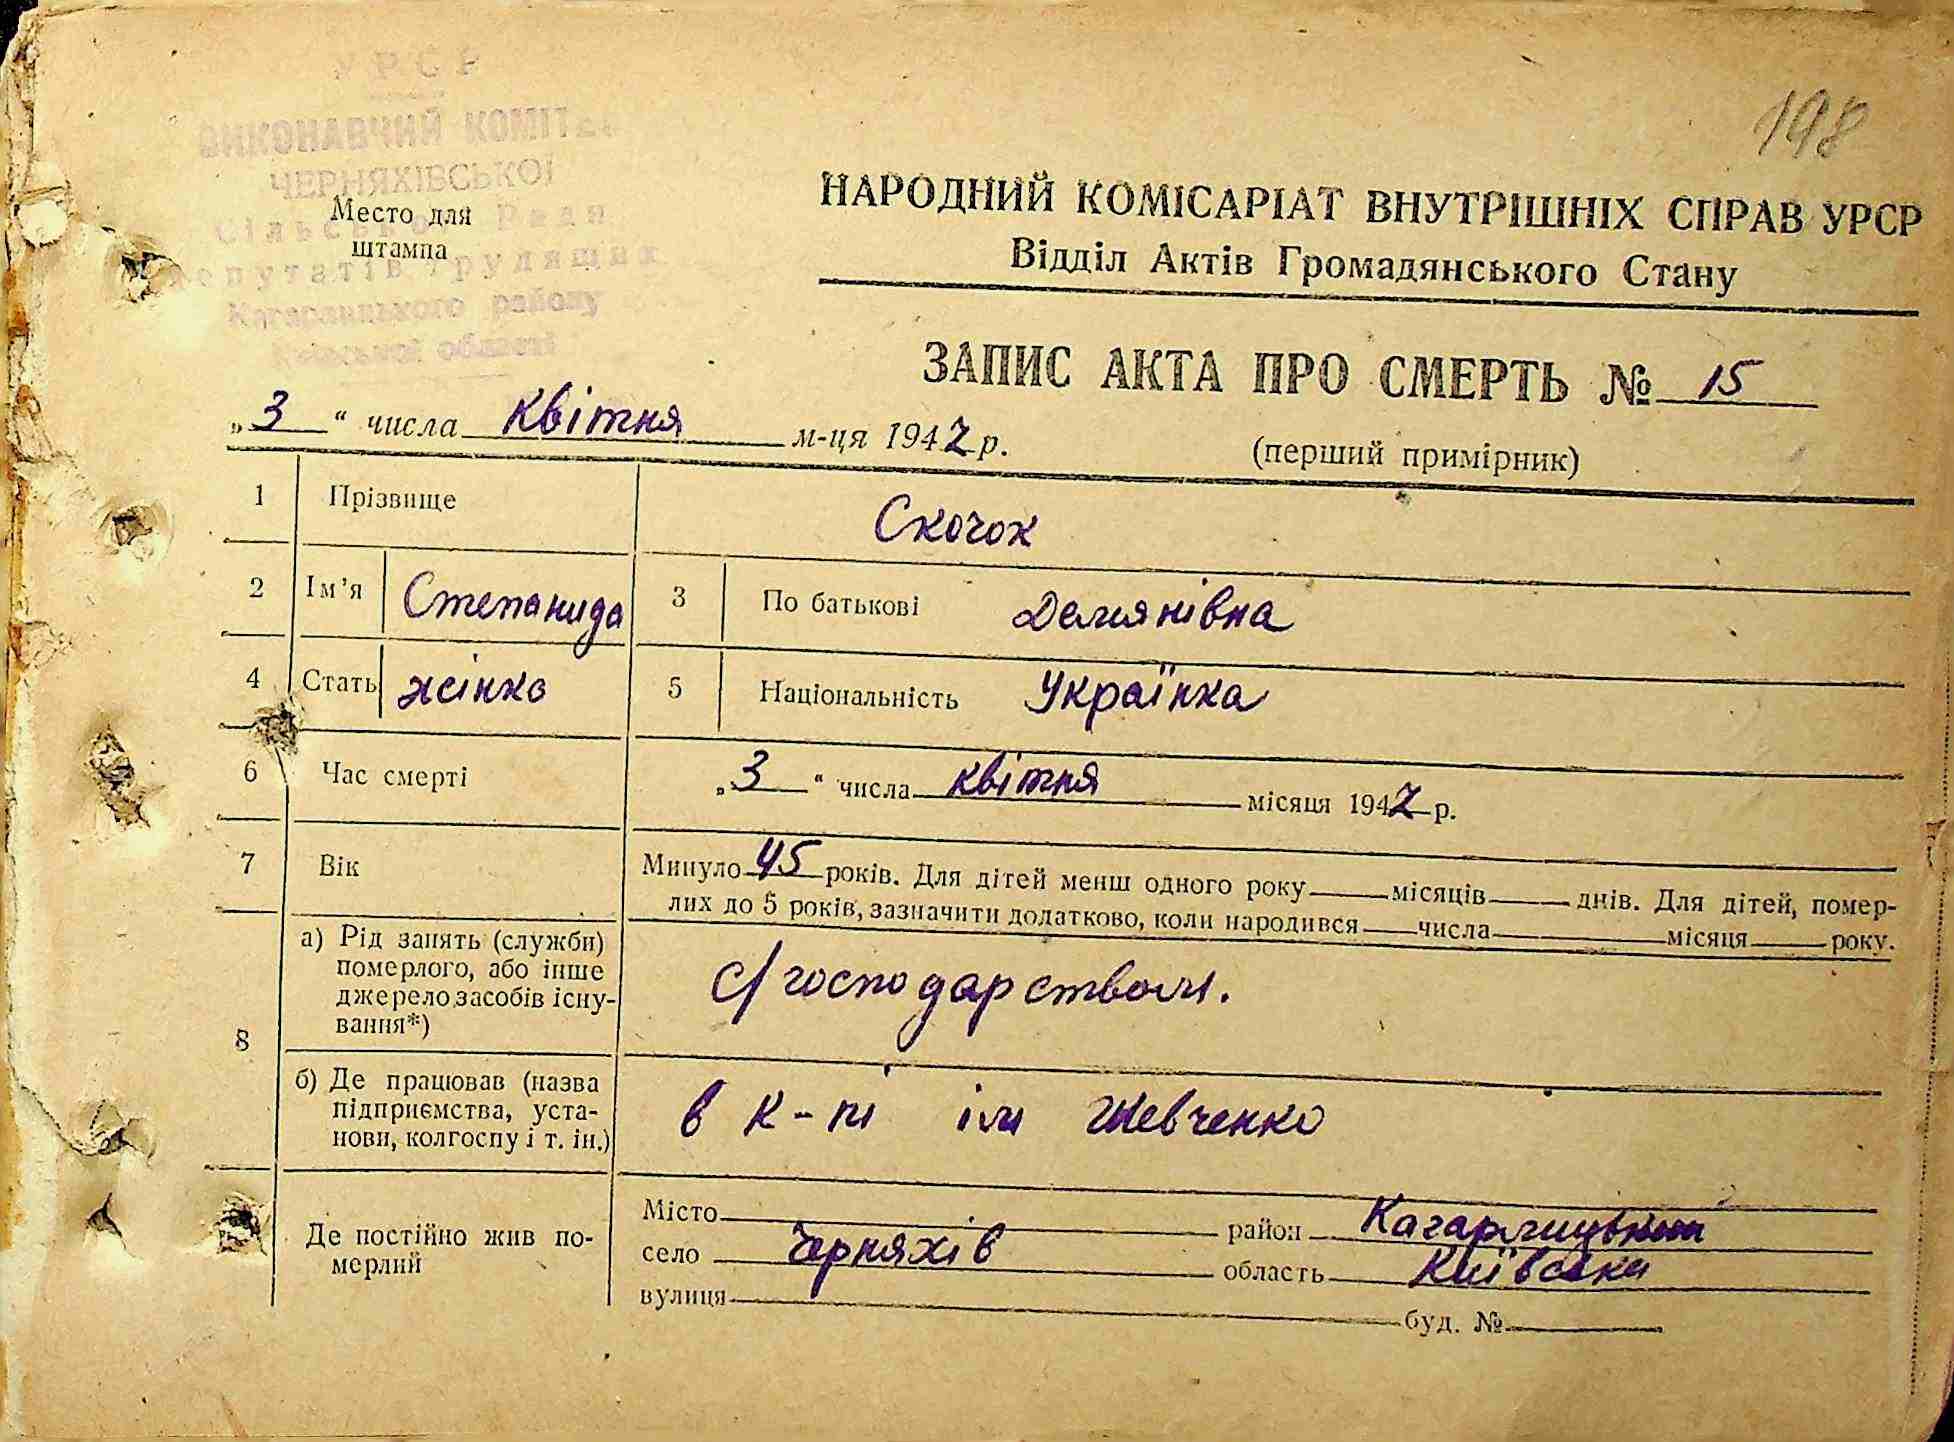 198
УРСР
ВИКОНАВЧИЙ КОМІТЕ
ЧЕРНЯХІВСЬКОЇ
Сільської Ради
депутатів трудящих
Кагарлицького району
Київської області
Место для
штампа
НАРОДНИЙ КОМІСАРІАТ ВНУТРІШНІХ СПРАВ УРСР
Відділ Актів Громадянського Стану
ЗАПИС АКТА ПРО СМЕРТЬ № 15
„3“ числа квітня м-ця 1942 р.
(перший примірник)
1 Прізвище Скочок
2 Ім'я Степанида 3 По батькові Демянівна
4 Стать жінка 5 Національність Українка
6 Час смерті „3“ числа квітня місяця 1942 р.
7 Вік Минуло 45 років. Для дітей менш одного року місяців днів. Для дітей, помер-
лих до 5 років, зазначити додатково, коли народився числа місяця року.
8 а) Рід занять (служби)
померлого, або інше
джерело засобів існу-
вання*)
с/господарством.
б) Де працював (назва
підприємства, уста-
нови, колгоспу і т. ін.)
в к-пі ім Шевченко
Де постійно жив по-
мерлий
Місто район Кагарлицький
село Черняхів область Київська
вулиця буд. №